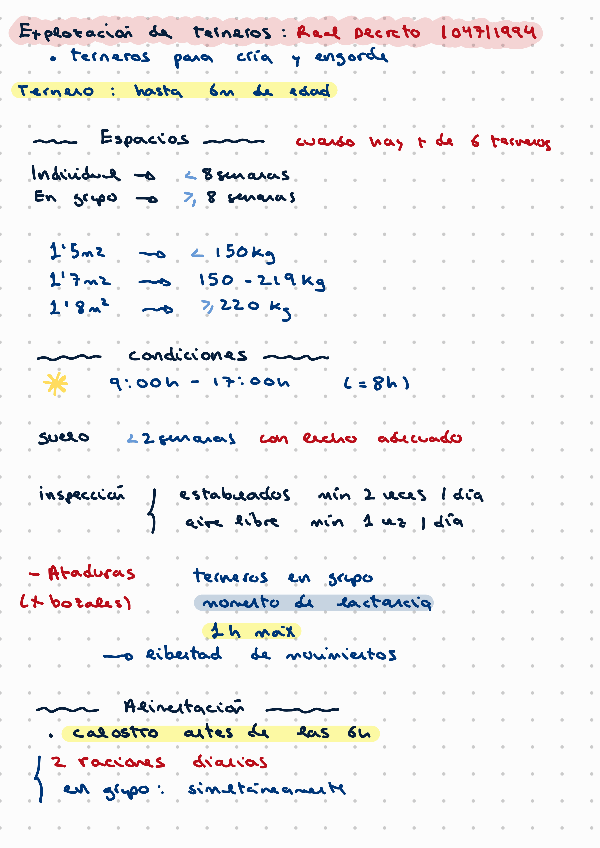 Explotación de terneros: Real Decreto 1047/1994
• terneros para cría y engorde
Ternero: hasta 6m de edad
Espacios cuando hay + de 6 terneros
Individual → < 8 semanas
En grupo → ≥ 8 semanas
1'5m2 → < 150kg
1'7m2 → 150 - 219 kg
1'8m² → ≥ 220 kg
condiciones
9:00h - 17:00h (= 8h)
suelo < 2 semanas con lecho adecuado
inspección { estabulados min 2 veces / día
aire libre min 1 vez / día
- Ataduras terneros en grupo
(+ bozales) momento de lactancia
1h máx
→ libertad de movimientos
Alimentación
• calostro antes de las 6h
{ 2 raciones diarias
en grupo: simultáneamente